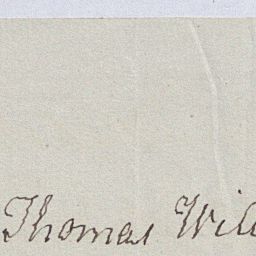 Thomas Will